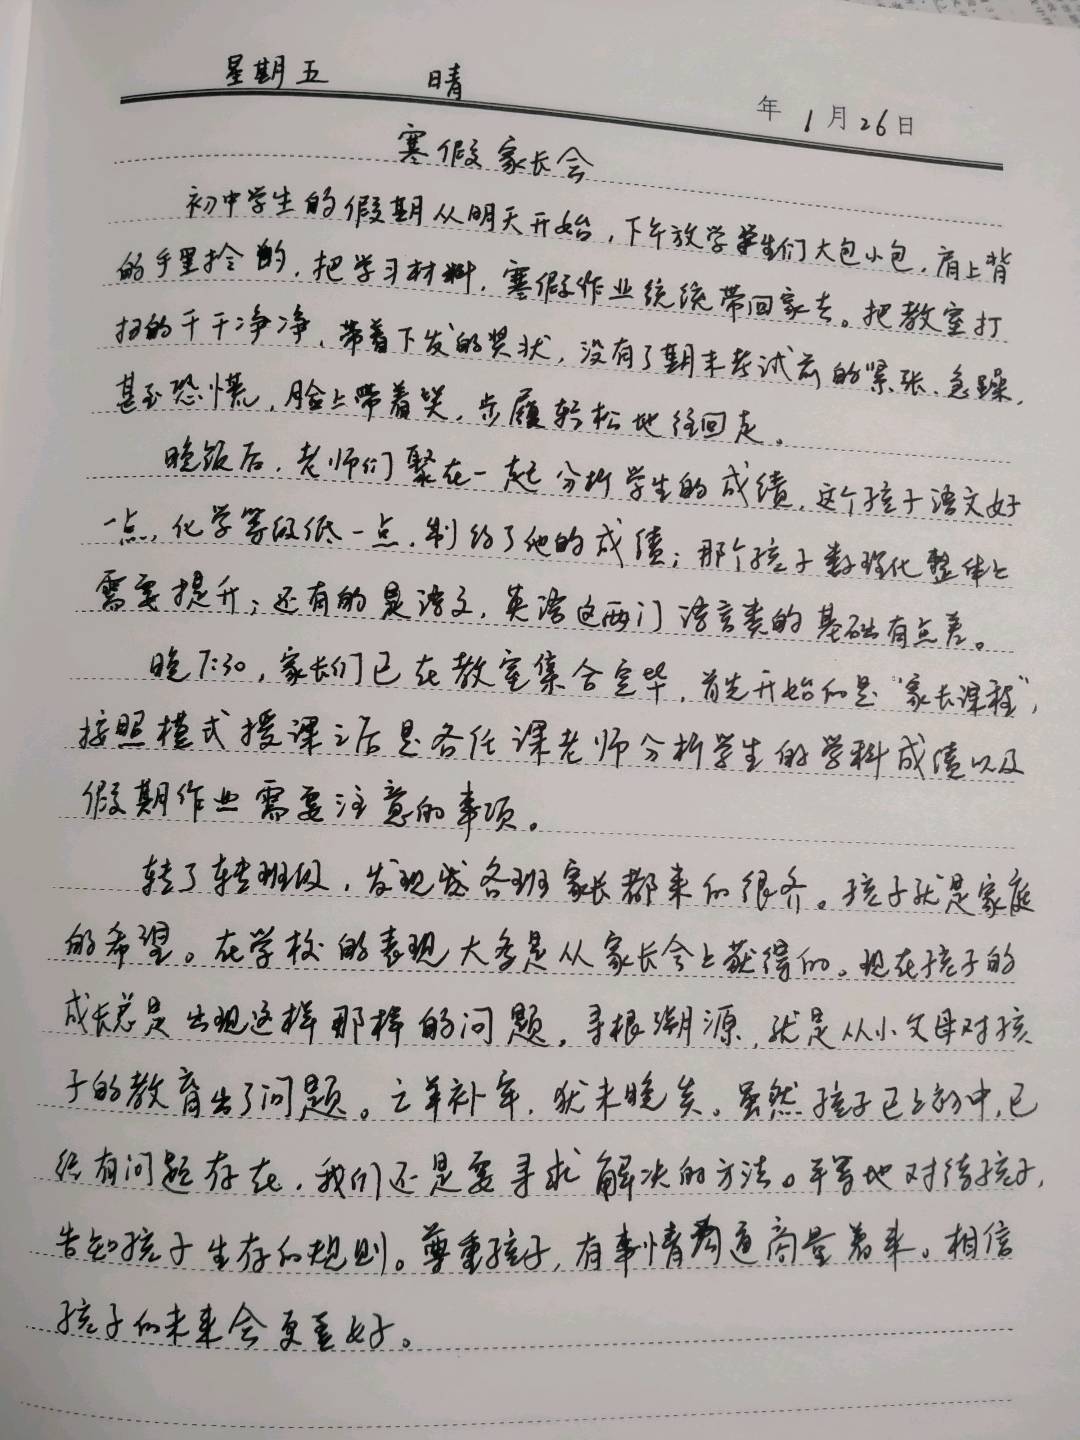 星期五 晴 年1月26日
寒假家长会
初中学生的假期从明天开始，下午放学学生们大包小包，肩上背
的手里拎的，把学习材料，寒假作业统统带回家去。把教室打
扫的干干净净，带着下发的奖状，没有了期末考试前的紧张、急躁，
甚至恐慌，脸上带着笑，步履轻松地往回走。
晚饭后，老师们聚在一起分析学生的成绩，这个孩子语文好
一点，化学等级低一点，制约了他的成绩；那个孩子数理化整体上
需要提升；还有的是语文，英语这两门语言类的基础有点差。
晚7:30，家长们已在教室集合完毕，首先开始的是“家长课程”，
按照模式授课之后是各任课老师分析学生的学科成绩以及
假期作业需要注意的事项。
转了转班级，发现各班家长都来的很齐。孩子就是家庭
的希望。在学校的表现大多是从家长会上获得的。现在孩子的
成长总是出现这样那样的问题，寻根溯源，就是从小父母对孩
子的教育出了问题。亡羊补牢，犹未晚矣。虽然孩子已上初中，已
经有问题存在，我们还是要寻求解决的方法。平等地对待孩子，
告知孩子生存的规则。尊重孩子，有事情沟通商量着来。相信
孩子的未来会更美好。